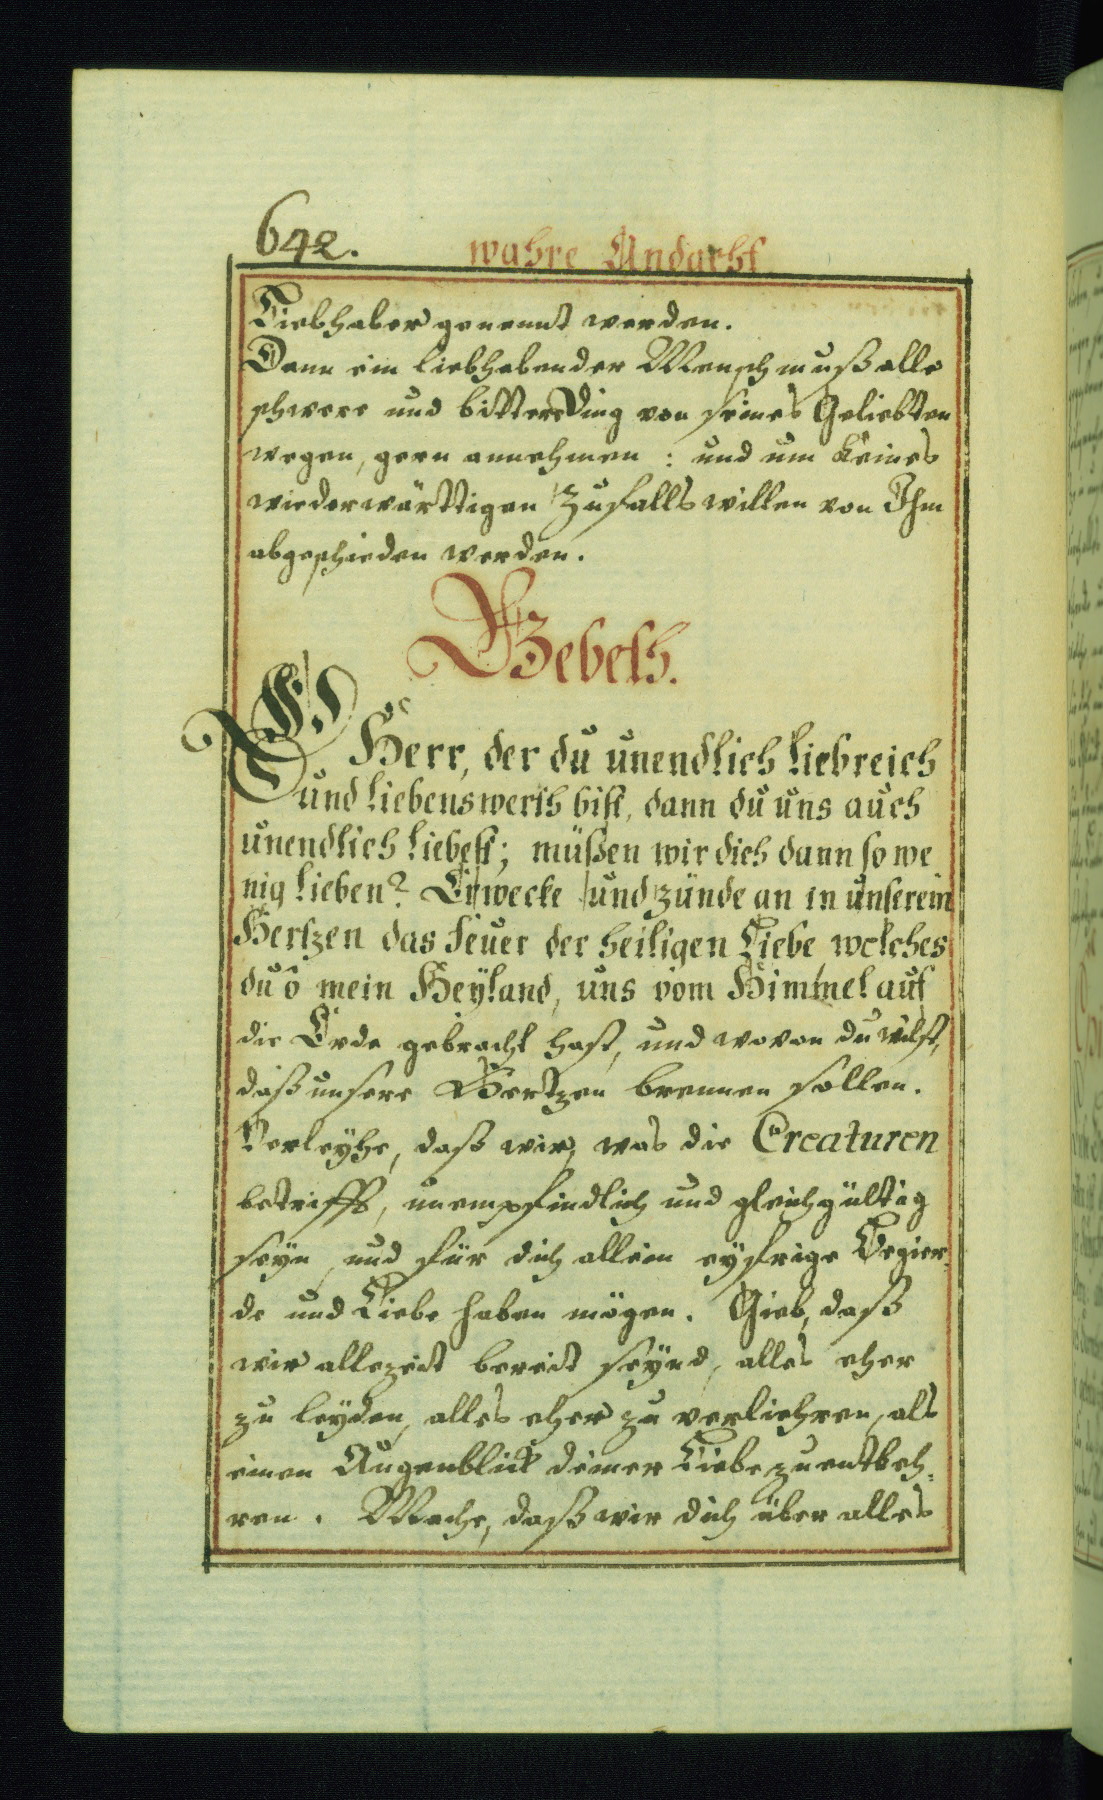 642.
wahre Andacht
Liebhaber genennt werden.
Dann ein liebhabender Mensch muß alle
schwere und bittere Ding von seines Geliebten
wegen, gern annehmen : und um keines
wiederwärttigen Zufalls willen von Ihm
abgeschieden werden.
Gebeth.
O Herr, der du unendlich liebreich
und liebenswerth bist, dann du uns auch
unendlich liebest; müßen wir dich dann so we
nig lieben? Erwecke und zünde an in unserem
Hertzen das Feuer der heiligen Liebe welches
du ô mein Heÿland, uns vom Himmel auf
die Erde gebracht hast, und wovon du wilst,
daß unsere Hertzen brennen sollen.
Verleÿhe, daß wir, was die Creaturen
betrifft, unempfindlich und gleichgültig
seÿn, und für dich allein eÿfrige Begier-
de und Liebe haben mögen. Gieb, daß
wir allezeit bereit seÿnd, alles eher
zu leÿden, alles eher zu verliehren, als
einen Augenblick deiner Liebe zu entbeh-
ren. Mache, daß wir dich über alles